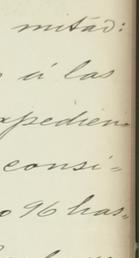 mitad:
á las
xpedien
consi=
o 96 has-